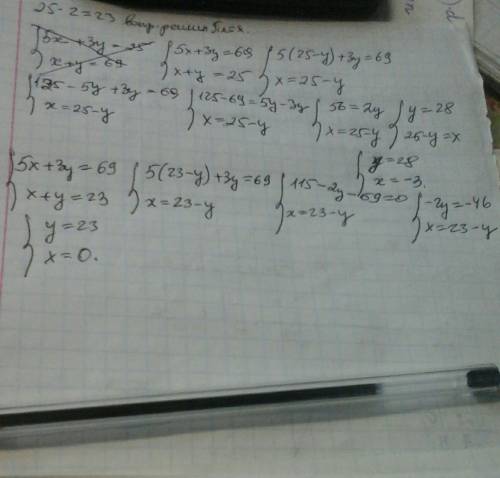 25-2=23 вопр. решил бы
5x + 3y = 25
x + y = 69
5x + 3y = 69
x + y = 25
5(25-y) + 3y = 69
x = 25 - y
125 - 5y + 3y = 69
x = 25 - y
125 - 69 = 5y - 3y
x = 25 - y
56 = 2y
x = 25 - y
y = 28
25 - y = x
y = 28
x = -3.
5x + 3y = 69
x + y = 23
5(23-y) + 3y = 69
x = 23 - y
115 - 2y - 69 = 0
x = 23 - y
-2y = -46
x = 23 - y
y = 23
x = 0.